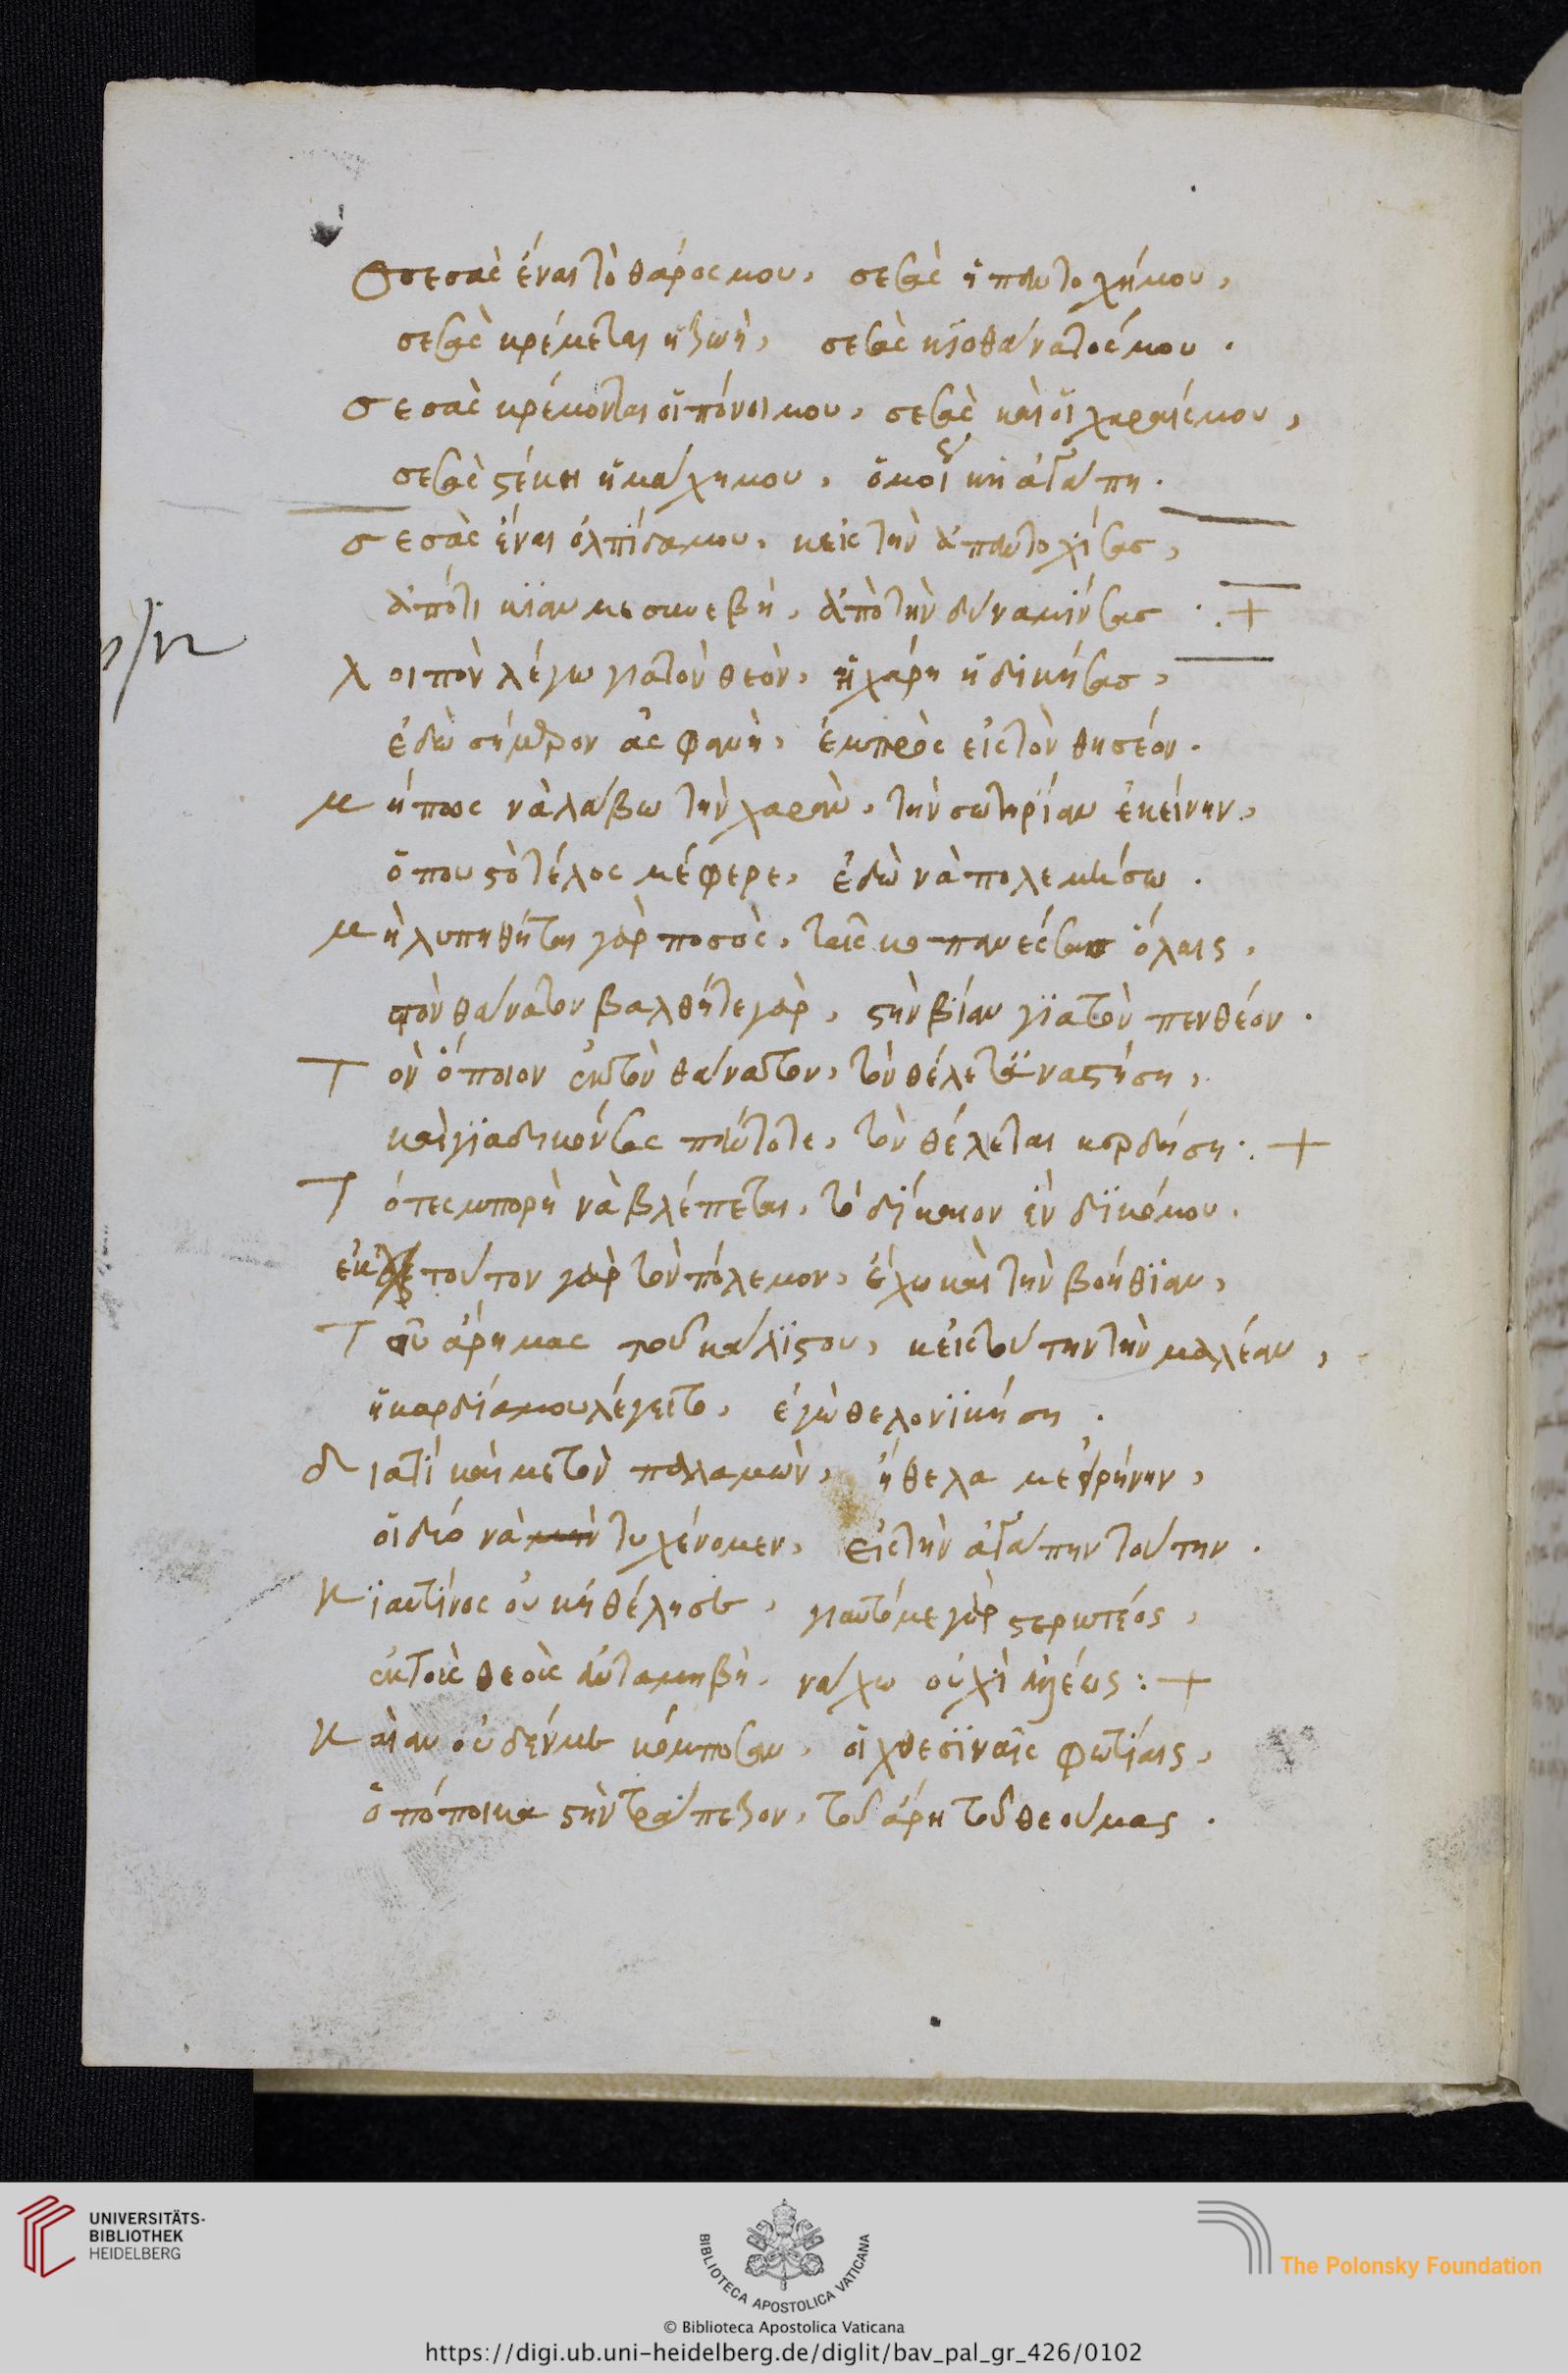 σεσὰς ἔναι τὸ θάρος μου, σεσὰς ἡ πτωχή μου,
σεσὰς κρέμεται ἡ ζωὴ, σεσὰς κι ὁ θάνατός μου.
σεσὰς κρέμονται οἱ πόνοι μου, σεσὰς καὶ οἱ χαραίς μου,
σεσὰς στέκει ἡ μάχη μου, ὁμοῖ κὴ ἀγάπη.
σεσὰς ἔναι ὀλπίδα μου, κεἰς τὴν
ἀπότι κἰαν με συνεβῆ, ἀπὸ τὴν δύναμίν σας :+
λοιπὸν λέγω γιατὸν θεὸν, ἡ χάρη ἡ δική σας,
ἐδὼ σήμερον ἀς φανὴ, ἐμπρὸς εἰς τὸν θησέον.
μήπως νὰ λάβω τὴν χαρὰν, τὴν σωτηρίαν ἐκείνην,
ὅπου στὸ τέλος μέφερε, ἐδὼ νὰ πολεμήσω.
μὴ λυπηθῆται γὰρ ποσὸς, ταῖς
τὸν θάνατον βαλθῆτε γὰρ, στὴν βίαν γϊατὸν πενθέον.
Τὸν ὅποιον ἐκ τὸν θάνατον, τὸν θέλετ
καὶ γϊα δικόν σας πάντοτε, τὸν θέλεται κερδήση. +
Τότες μπορῆ νὰ βλέπεται, τὸ δίκαιον ἐν δϊκόμου.
ἐκ τούτον γὰρ τὸν πόλεμον, ἔχω καὶ τὴν βοήθϊαν,
Τοῦ ἄρη μας τοῦ καλΐστου, κεἰς τούτην τὴν μαλέαν,
ἡ καρδία μου λέγει το, ἐγὼ θελονϊκήση.
διατί καὶ με τὸν παλαμὼν, ἤθελα μεἰρήνην,
οἱ διό νὰ μὴν τυχένομεν, εἰς τὴν ἀγάπην τούτην.
Κϊαυτίνος οὐκήθέλησε, γιατόμε γὰρ
ἐκ τοὶς θεοὶς ἀνταμηβὴ, νάχω οὐχὶ :+
Κ οἱ χθεσϊναῖς φωτίαις,
ὁπόποικα στὴν τράπεζον, τοῦ ἄρη τοῦ θεού μας.
UNIVERSITÄTS-
BIBLIOTHEK
HEIDELBERG
BIBLIOTECA APOSTOLICA VATICANA
The Polonsky Foundation
© Biblioteca Apostolica Vaticana
https://digi.ub.uni-heidelberg.de/diglit/bav_pal_gr_426/0102